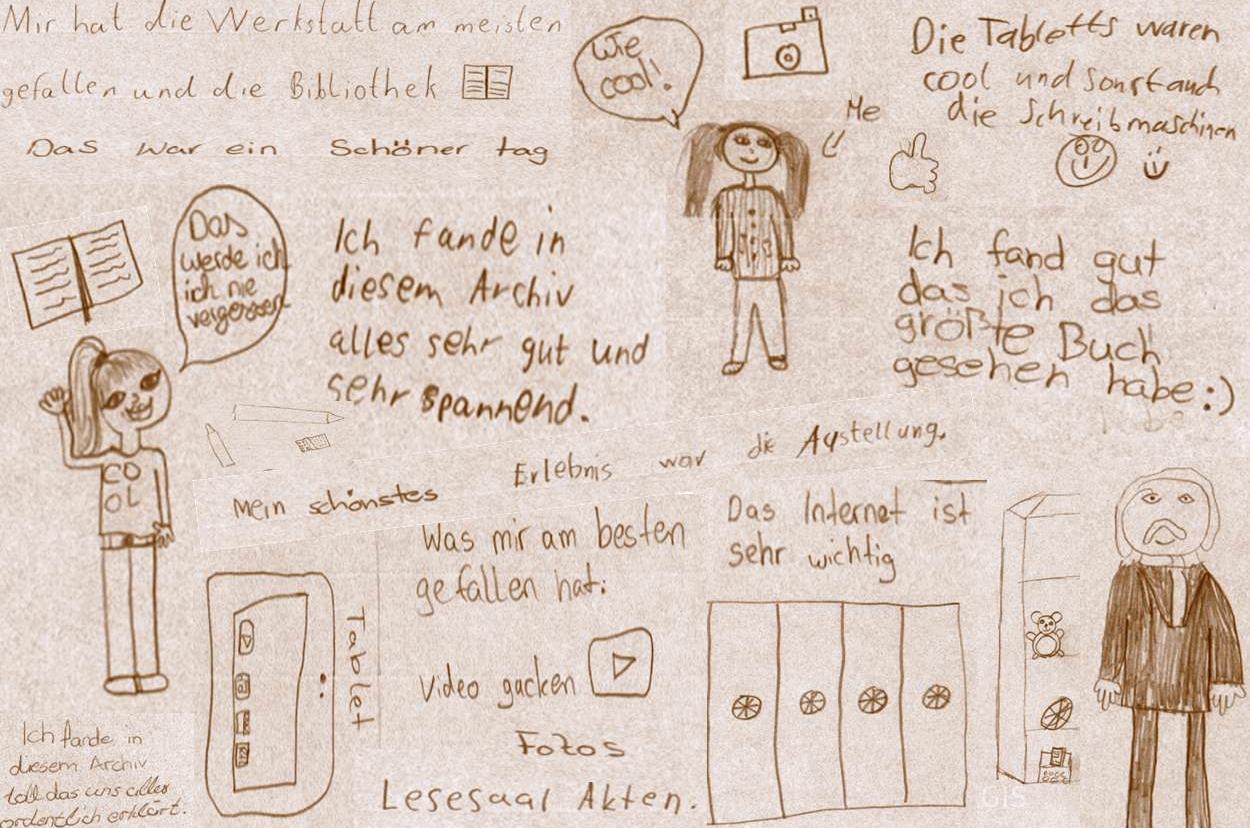 Mir hat die Werkstatt am meisten
gefallen und die Bibliothek
Das war ein Schöner tag
Wie
cool!
Me
Die Tabletts waren
cool und sonst auch
die Schreibmaschinen
Das
werde ich
ich nie
vergessen
Ich fande in
diesem Archiv
alles sehr gut und
sehr spannend.
Ich fand gut
das ich das
größte Buch
gesehen habe:)
CO
OL
Mein schönstes Erlebnis war die Austellung.
Was mir am besten
gefallen hat:
Video gucken
Fotos
Lesesaal Akten.
Das Internet ist
sehr wichtig
Tablet
Ich fande in
diesem Archiv
toll das uns alles
ordentlich erklärt.
GIS